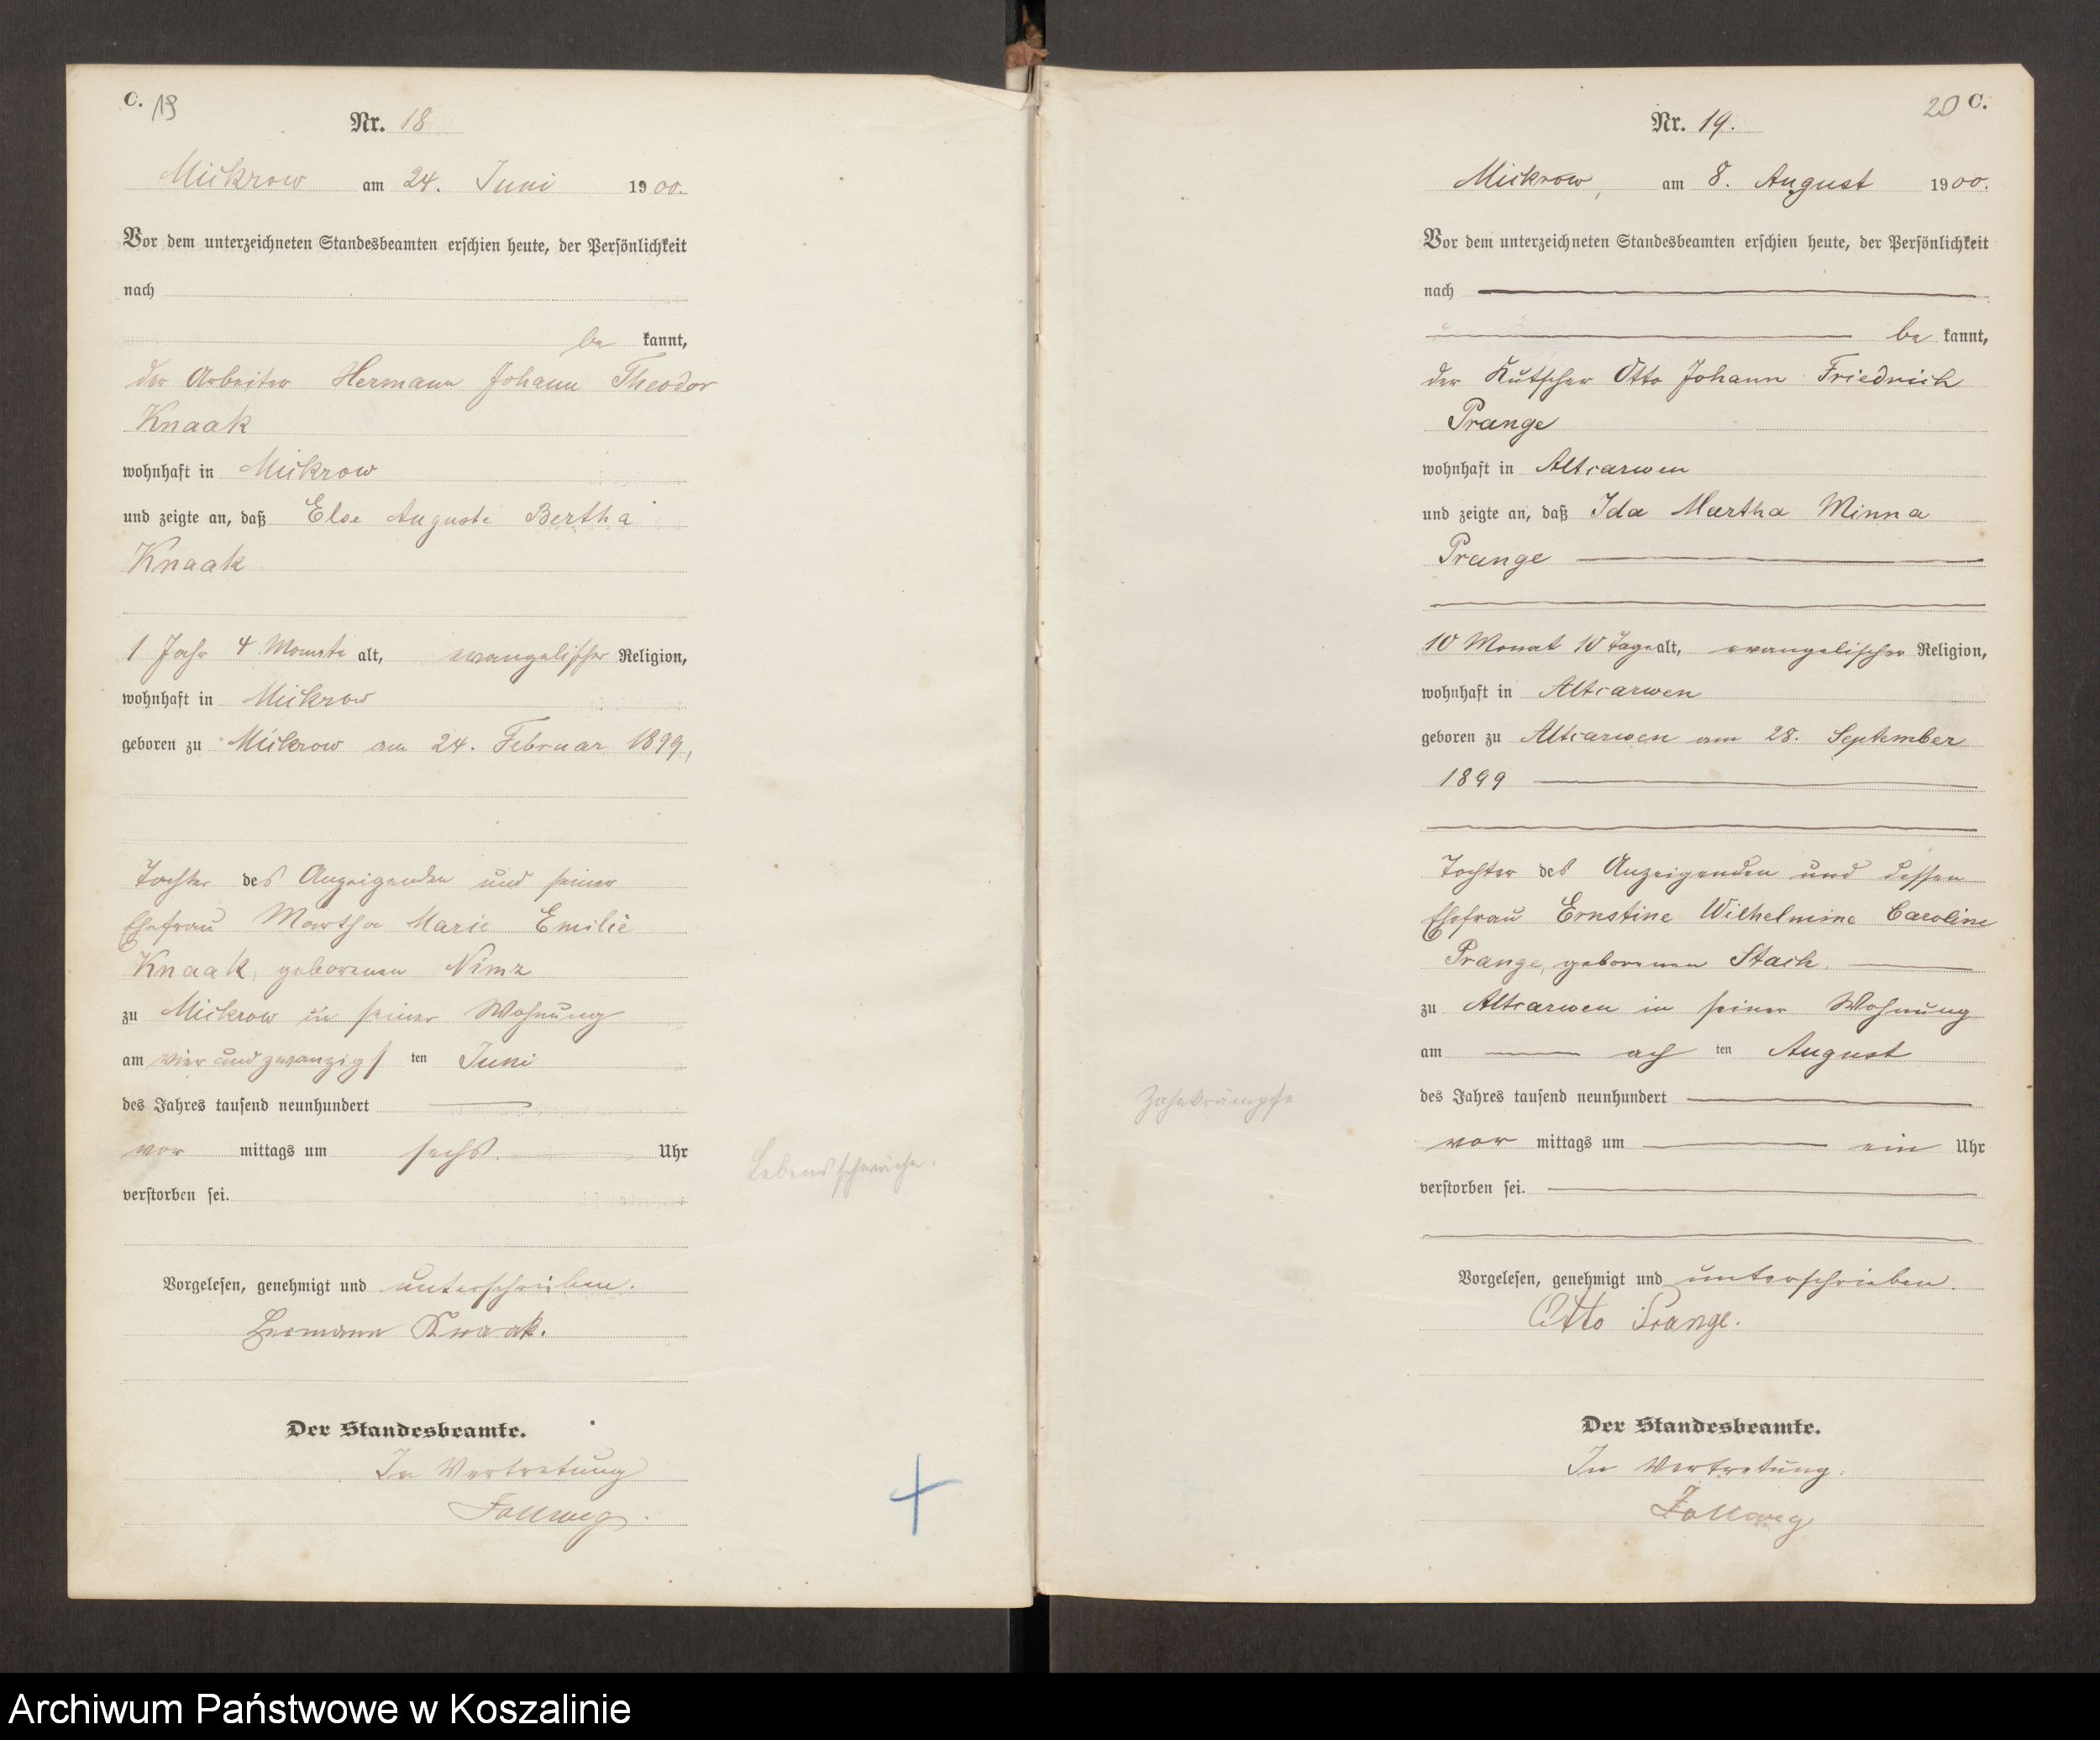 C. 19
Nr. 18
Mickrow am 24. Juni 1900.
Vor dem unterzeichneten Standesbeamten erschien heute, der Persönlichkeit
nach
be kannt,
der Arbeiter Hermann Johann Theodor
Knaak
wohnhaft in Mickrow
und zeigte an, daß Else Auguste Bertha
Knaak
1 Jahr 4 Monate alt, evangelischer Religion,
wohnhaft in Mickrow
geboren zu Mickrow am 24. Februar 1899,
Tochter des Anzeigenden und seiner
Ehefrau Martha Marie Emilie
Knaak, geborenen Nimz
zu Mickrow in seiner Wohnung
am vier und zwanzigs ten Juni
des Jahres tausend neunhundert
vor mittags um sechs Uhr
verstorben sei.
Lebensschwäche.
Vorgelesen, genehmigt und unterschrieben.
Hermann Knaak.
Der Standesbeamte.
In Vertretung
Follweg.
20 C.
Nr. 19.
Mickrow, am 8. August 1900.
Vor dem unterzeichneten Standesbeamten erschien heute, der Persönlichkeit
nach
be kannt,
der Kutscher Otto Johann Friedrich
Prange
wohnhaft in Altcarwen
und zeigte an, daß Ida Martha Minna
Prange
10 Monat 10 Tage alt, evangelischer Religion,
wohnhaft in Altcarwen
geboren zu Altcarwen am 28. September
1899
Tochter des Anzeigenden und dessen
Ehefrau Ernstine Wilhelmine Caroline
Prange, geborenen Stach.
zu Altcarwen in seiner Wohnung
am ach ten August
des Jahres tausend neunhundert
Zahnkrämpfe
vor mittags um ein Uhr
verstorben sei.
Vorgelesen, genehmigt und unterschrieben.
Otto Prange.
Der Standesbeamte.
In Vertretung.
Follweg
Archiwum Państwowe w Koszalinie